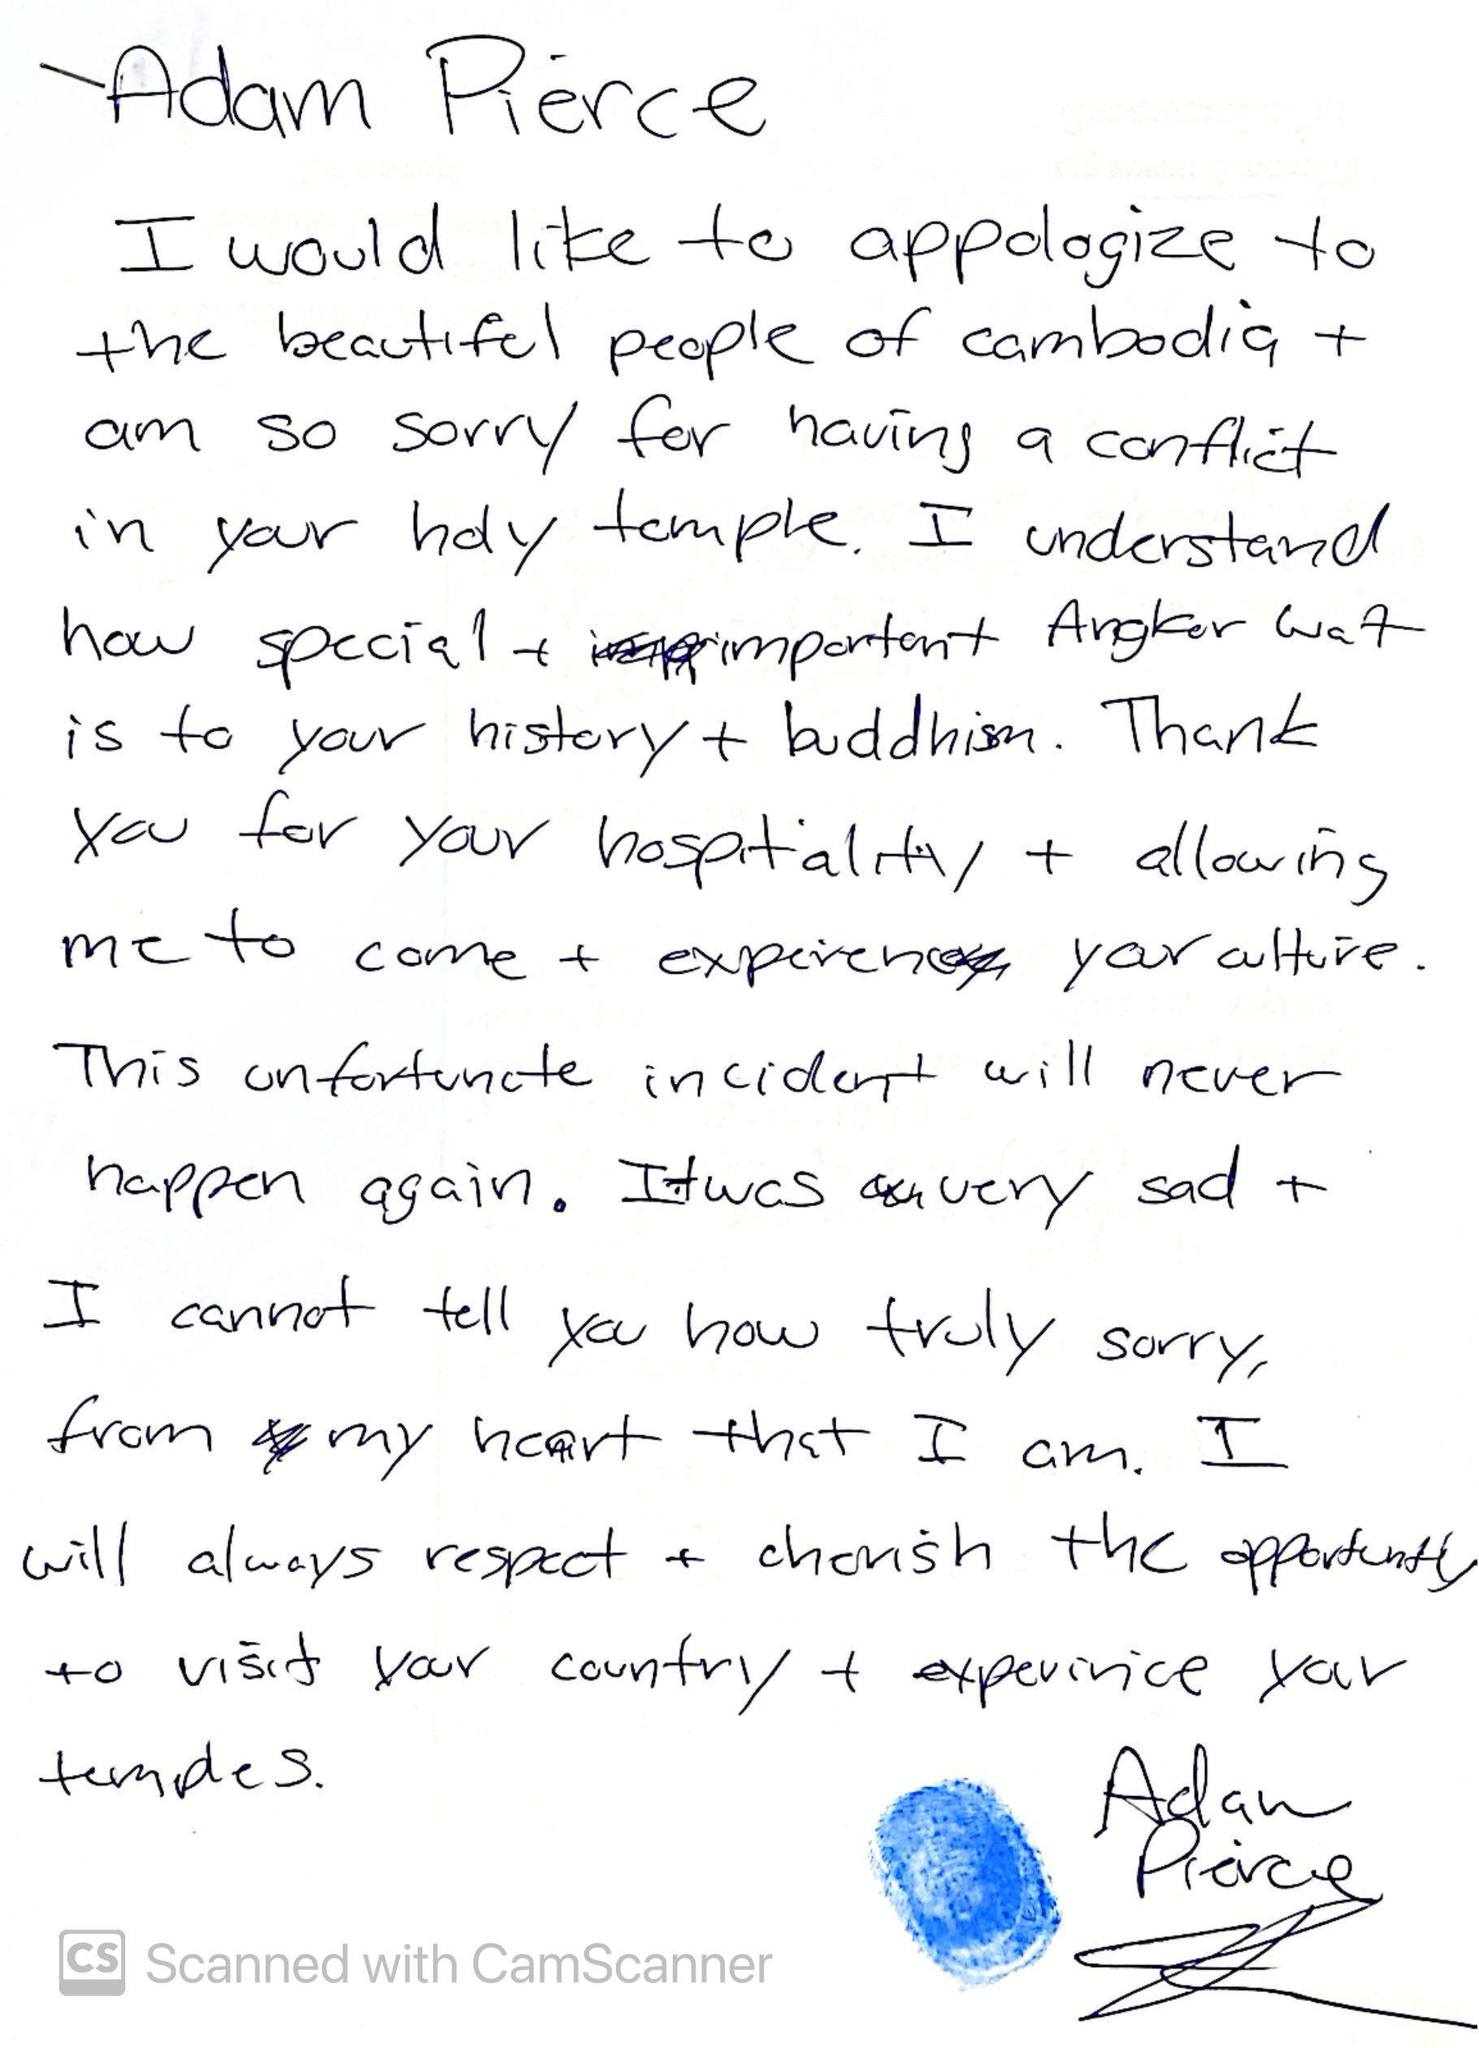 Adam Pierce
I would like to appologize to
the beautiful people of cambodia +
am so sorry for having a conflict
in your holy temple. I understand
how special + important Angkor Wat
is to your history + buddhism. Thank
you for your hospitality + allowing
me to come + expeirence your culture.
This unfortunate incident will never
happen again. It was very sad +
I cannot tell you how truly sorry,
from my heart that I am. I
will always respect + cherish the opportunity
to visit your country + experinice your
temples.
Adam
Pierce
CS Scanned with CamScanner